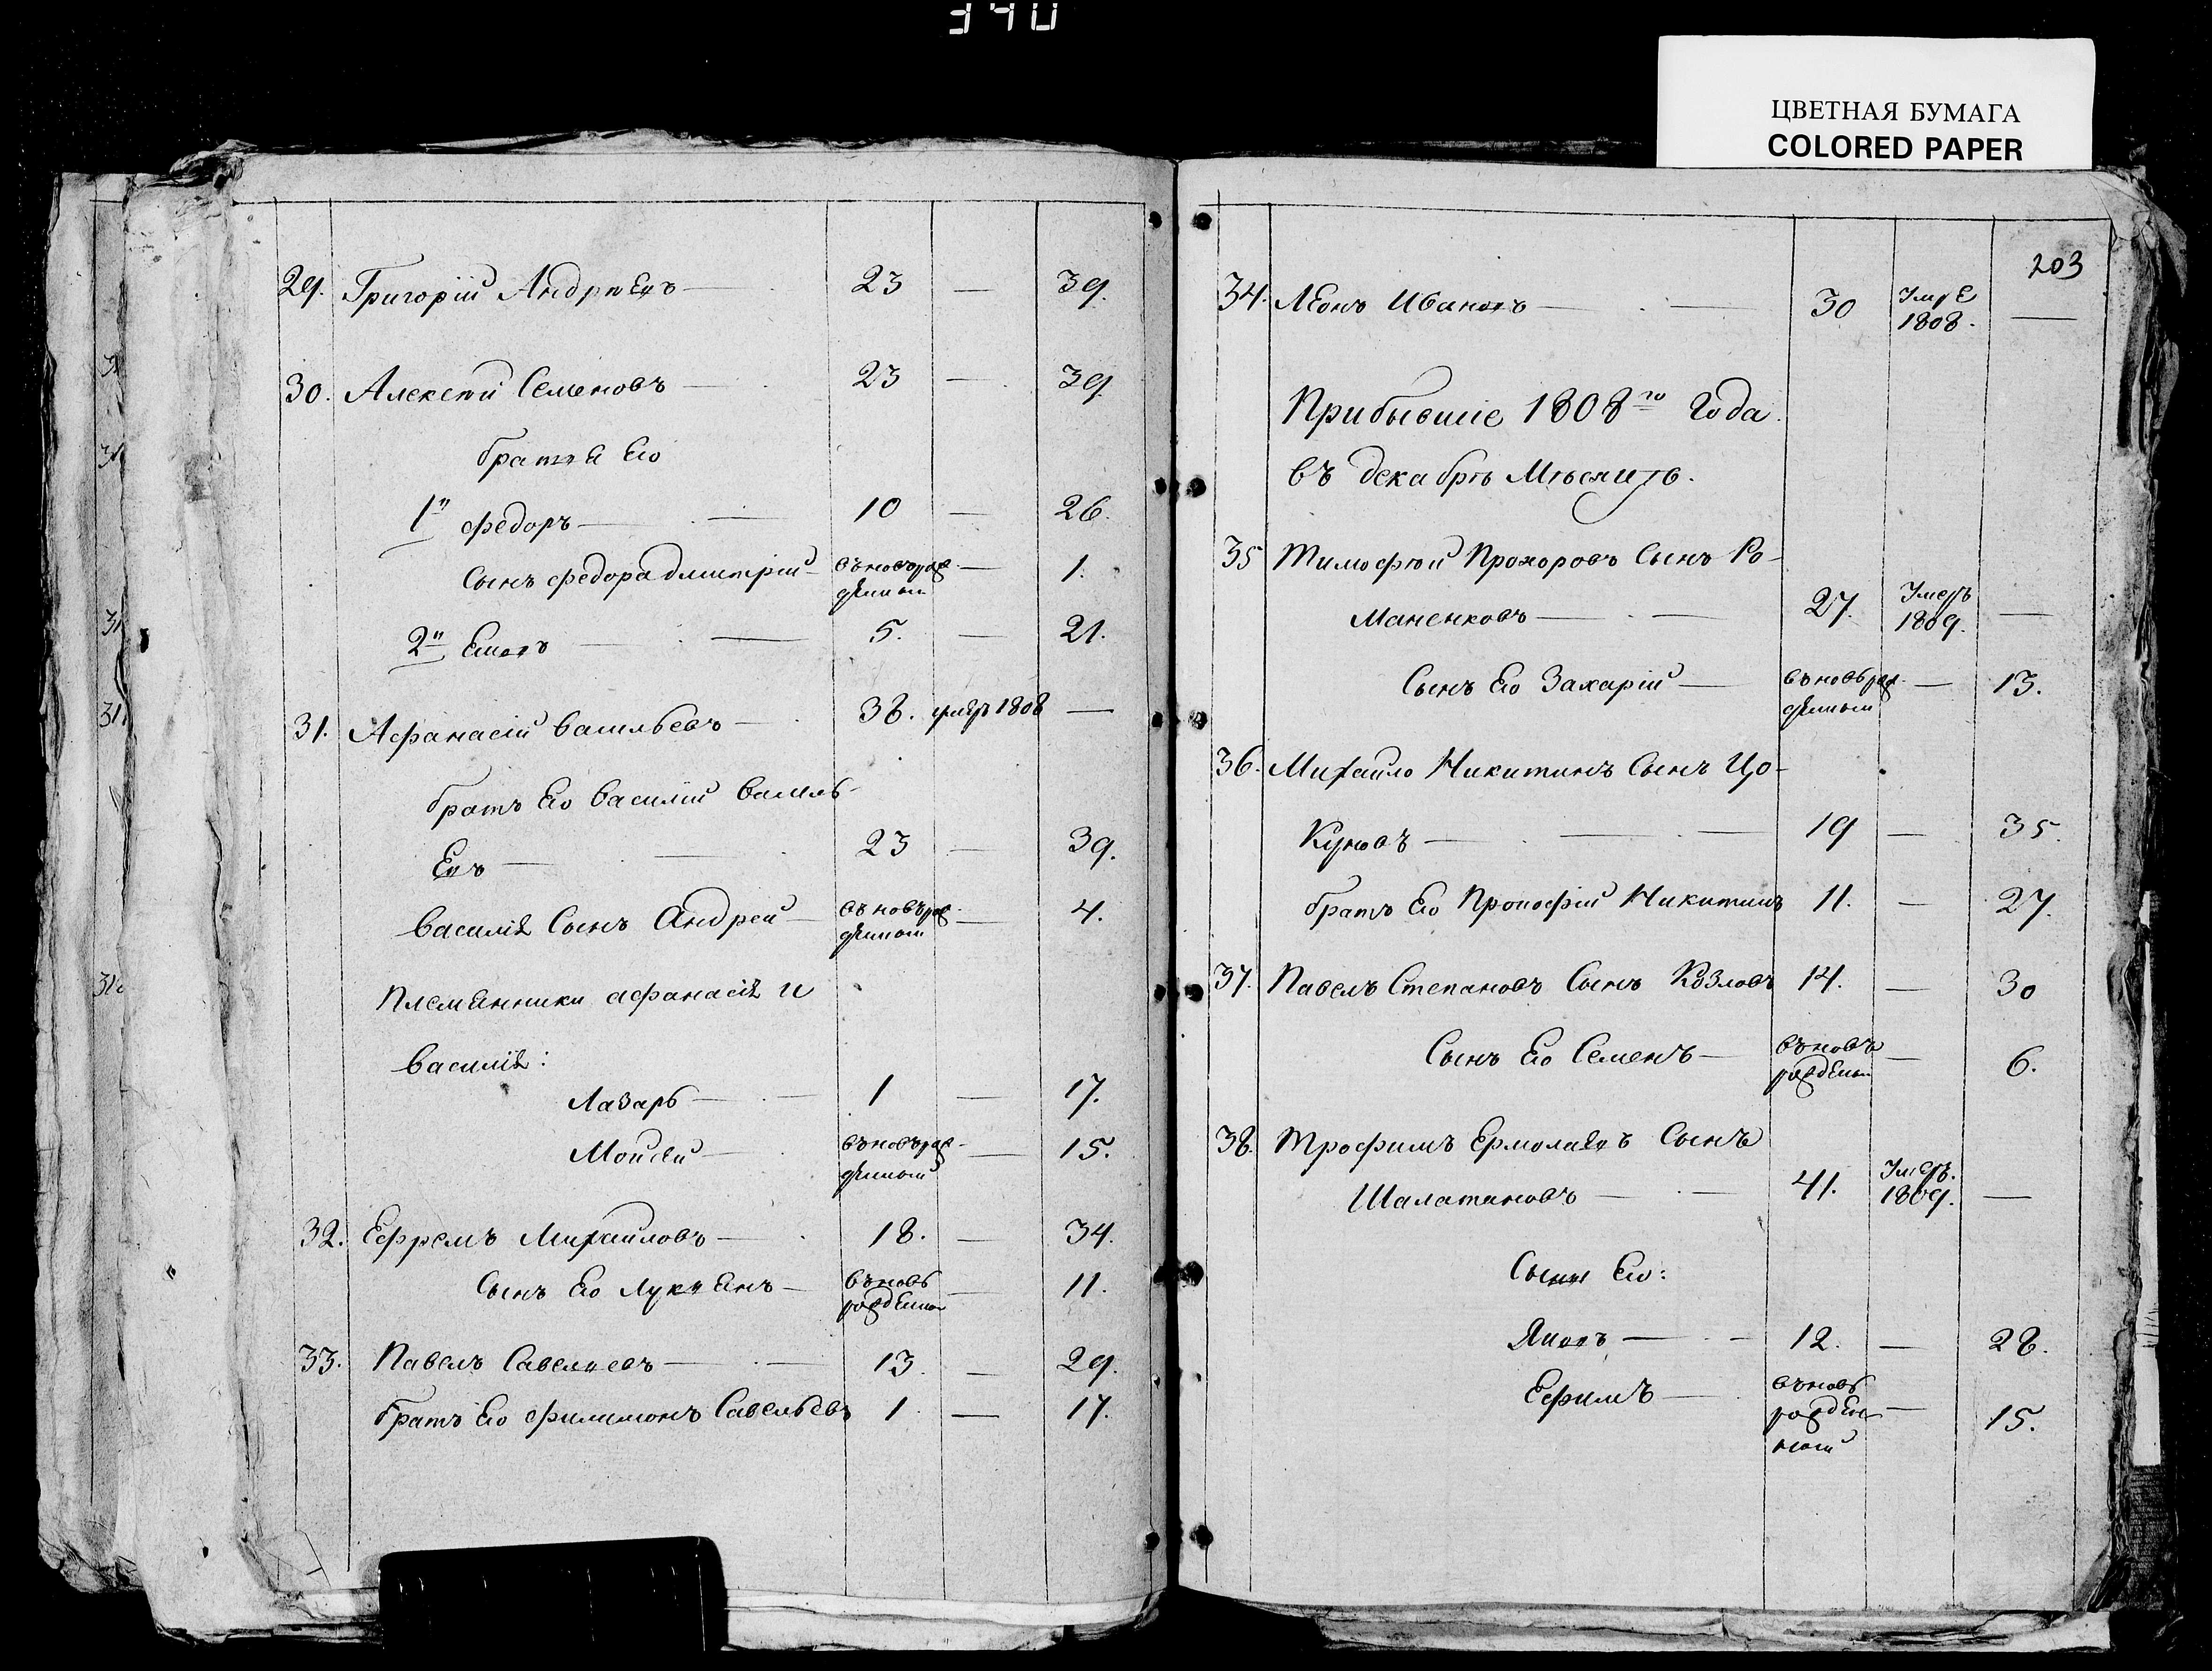 340
ЦВЕТНАЯ БУМАГА
COLORED PAPER
29. Григорій Андрѣевъ — 23 — 39.
30. Алексѣй Семеновъ — 23 — 39.
братья Его
1й федоръ — 10 — 26.
Сынъ федора дмитрій — въновьрож- — 1.
денной
2й Емел — 5. — 21.
31. Афанасій васильевъ — 38. умеръ 1808 —
братъ Его василій василь-
Евъ — 23 — 39.
василія Сынъ Андрей — въновьрож- — 4.
денной
Племянники афанасія и
василія:
Лазарь — 1 — 17.
Мойсѣй — въновьрож- — 15.
денной
32. Ефремъ Михайловъ — 18. — 34.
Сынъ Его Лукьянъ — въновь — 11.
рожденной
33. Павелъ Савельевъ — 13. — 29.
братъ Его филимонъ Савельевъ 1 — 17.
31
31
31
31.
31.
203
34. Леонъ Ивановъ — 30 Умре —
1808.
Прибывшіе 1808го Года.
въ декабрѣ Мѣсяцѣ.
35 Тимофѣй Прохоровъ Сынъ Ро-
маненковъ — 27. Умеръ —
1809.
Сынъ Его Захарій — въновьрож- — 13.
денной
36. Михайло Никитинъ Сынъ Цо-
куновъ — 19 — 35.
братъ Его Прокофій Никитинъ 11. — 27.
37. Павелъ Степановъ Сынъ Козловъ 14. — 30
Сынъ Его Семенъ — въновь — 6.
рожденной
38. Трофимъ Ермолаевъ Сынъ
Шалатановъ — 41. Умеръ. —
1809.
Сыны Его:
Яковъ — 12. — 28.
Ефимъ — въновь — 15.
рожден-
ной